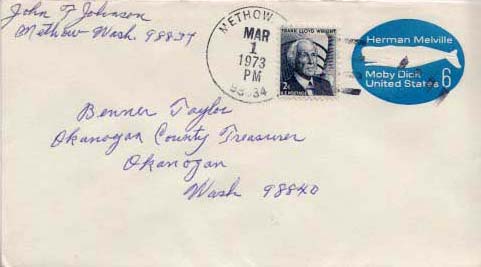 John F Johnson
Methow Wash. 98834
METHOW
MAR
1
1973
PM
98834
FRANK LLOYD WRIGHT
2¢
U.S. POSTAGE
Herman Melville
Moby Dick
United States 6
Benner Taylor
Okanogan County Treasurer
Okanogan
Wash 98840